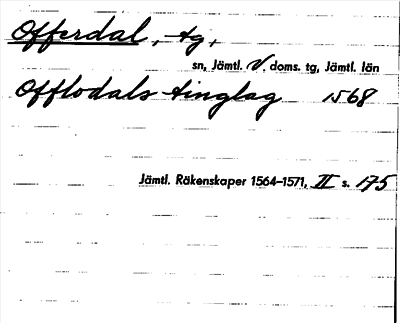 Offerdal, tg,
sn, Jämtl. V. doms. tg, Jämtl. län
Offlodals tinglag 1568
Jämtl. Räkenskaper 1564–1571, II s. 175